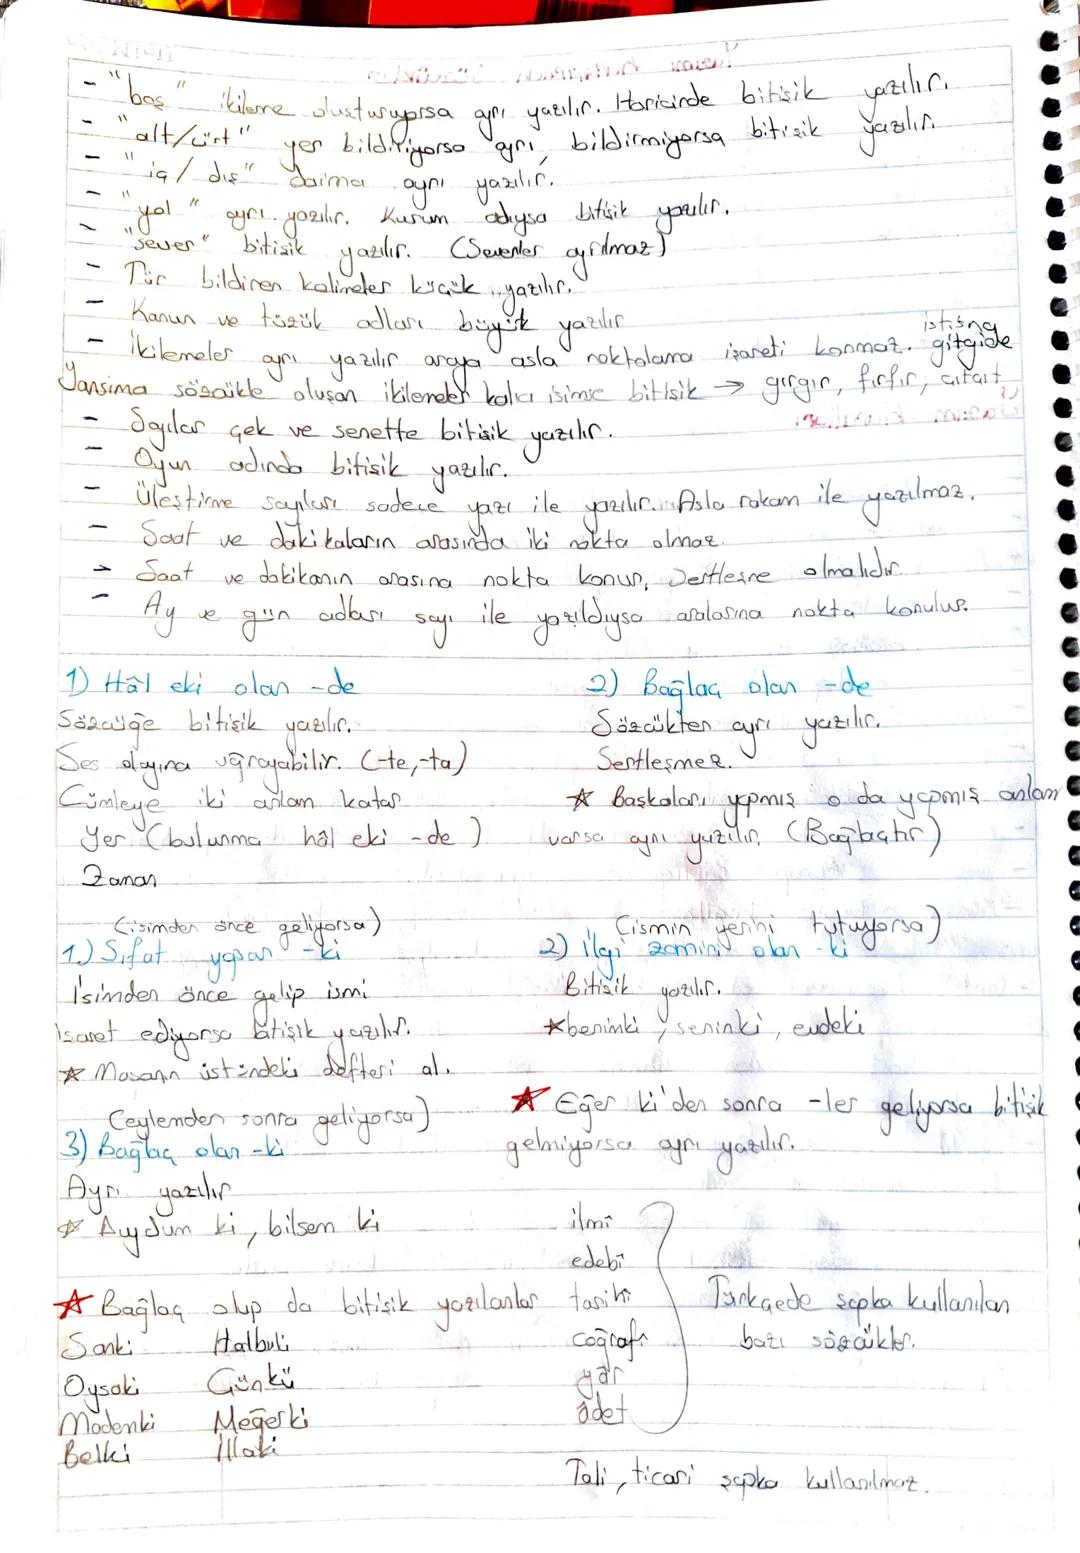 - "baş" ikileme oluşturuyorsa ayrı yazılır. Haricinde bitişik yazılır.
- "alt/üst" yer bildiriyorsa ayrı, bildirmiyorsa bitişik yazılır.
- "iç / dış" daima ayrı yazılır.
- "yol" ayrı yazılır. Kurum adıysa bitişik yazılır.
- "sever" bitişik yazılır. (Sevenler ayrılmaz)
- Tür bildiren kelimeler küçük yazılır.
- Kanun ve tüzük adları büyük yazılır
istisna
- İkilemeler ayrı yazılır araya asla noktalama işareti konmaz. gitgide
Yansıma sözcükle oluşan ikilemeler kalıcı isimse bitişik → gırgır, fırfır, cıtcıt
- Sayılar çek ve senette bitişik yazılır.
- Oyun adında bitişik yazılır.
- Üleştirme sayıları sadece yazı ile yazılır. Asla rakam ile yazılmaz.
- Saat ve dakikaların arasında iki nokta olmaz.
- Saat ve dakikanın arasına nokta konur, Sertleşme olmalıdır.
- Ay ve gün adları sayı ile yazıldıysa aralarına nokta konulur.
1) Hâl eki olan -de
Sözcüğe bitişik yazılır.
Ses olayına uğrayabilir. (-te,-ta)
Cümleye iki anlam katar
Yer (bulunma hâl eki -de)
Zaman
2) Bağlaç olan -de
Sözcükten ayrı yazılır.
Sertleşmez.
★ Başkaları yapmış o da yapmış anlam
varsa ayrı yazılır. (Bağlaçtır)
(isimden önce geliyorsa)
1.) Sıfat yapan -ki
İsimden önce gelip ismi
işaret ediyorsa bitişik yazılır.
★ Masanın üstündeki defteri al.
(ismin yerini tutuyorsa)
2) İlgi zamiri olan -ki
Bitişik yazılır.
★ benimki, seninki, evdeki
(eylemden sonra geliyorsa)
3) Bağlaç olan -ki
Ayrı yazılır
★ Duydum ki, bilsem ki
★ Eğer ki'den sonra -ler geliyorsa bitişik
gelmiyorsa ayrı yazılır.
★ Bağlaç olup da bitişik yazılanlar
Sanki Halbuki
Oysaki Çünkü
Madenki Meğerki
Belki İllaki
ilmî
edebî
tarihi
coğrafi
yâr
âdet
Türkçede şapka kullanılan
bazı sözcükler.
Tali, ticari şapka kullanılmaz.